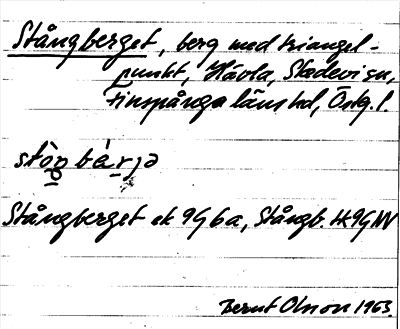 Stångberget, berg med triangel-
punkt, Hävla, Skedevi sn,
Finspånga läns hd, Östg. l.
stòŋ bæ̀rjə
Stångberget ek 9G 6a, Stångb. H 9G NV
Bernt Olsson 1963.